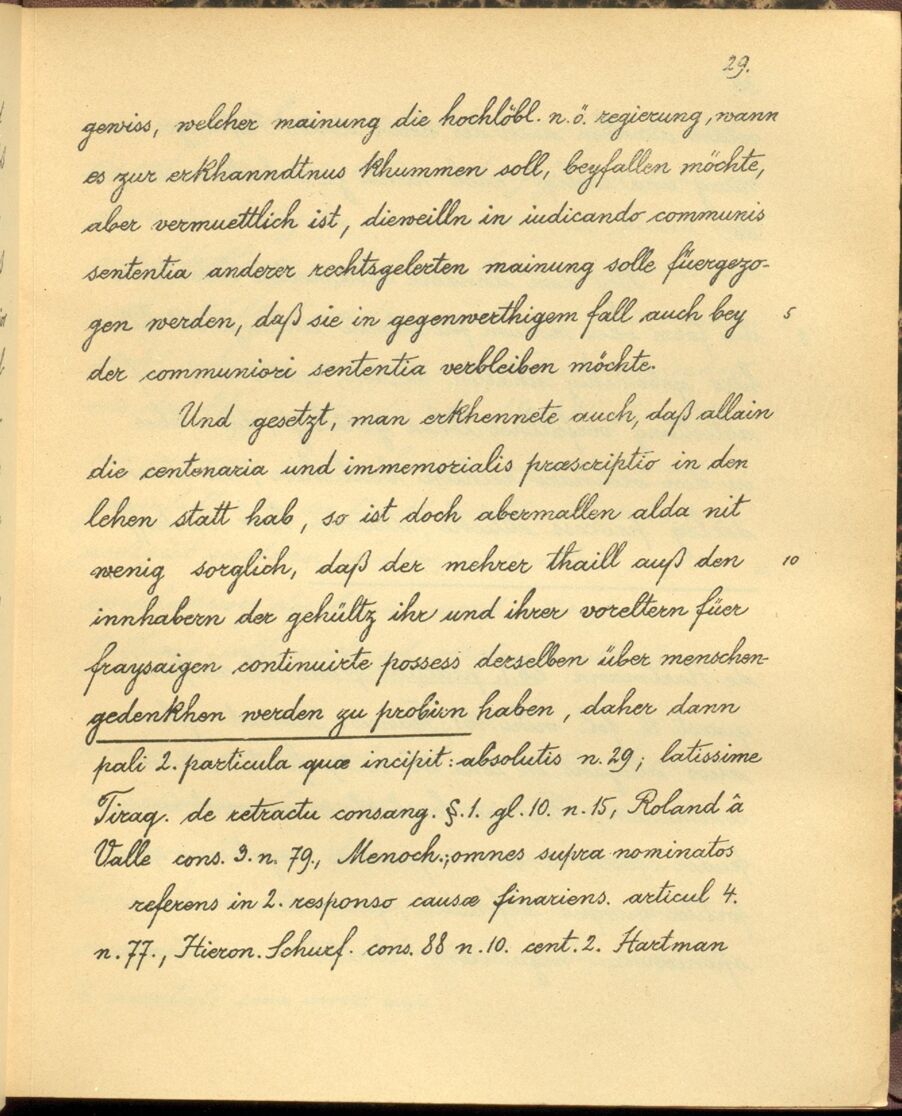 29.
gewiss, welcher mainung die hochlöbl. n. ö. regierung, wann
es zur erkhanndtnus khummen soll, beyfallen möchte,
aber vermuettlich ist, dieweilln in iudicando communis
sententia anderer rechtsgelerten mainung solle füergezo-
gen werden, daß sie in gegenwerthigem fall auch bey 5
der communiori sententia verbleiben möchte.
Und gesetzt, man erkhennete auch, daß allain
die centenaria und immemorialis præscriptio in den
lehen statt hab, so ist doch abermallen alda nit
wenig sorglich, daß der mehrer thaill auß den 10
innhabern der gehültz ihr und ihrer voreltern füer
fraysaigen continuirte possess derselben über menschen-
gedenkhen werden zu probirn haben, daher dann
pali 2. particula quæ incipit: absolutis n. 29; latissime
Tiraq. de retractu consang. §. 1. gl. 10. n. 15, Roland â
Valle cons. 3. n. 79., Menoch.; omnes supra nominatos
referens in 2. responso causæ finariens. articul 4.
n. 77., Hieron. Schurf. cons. 88 n. 10. cent. 2. Hartman